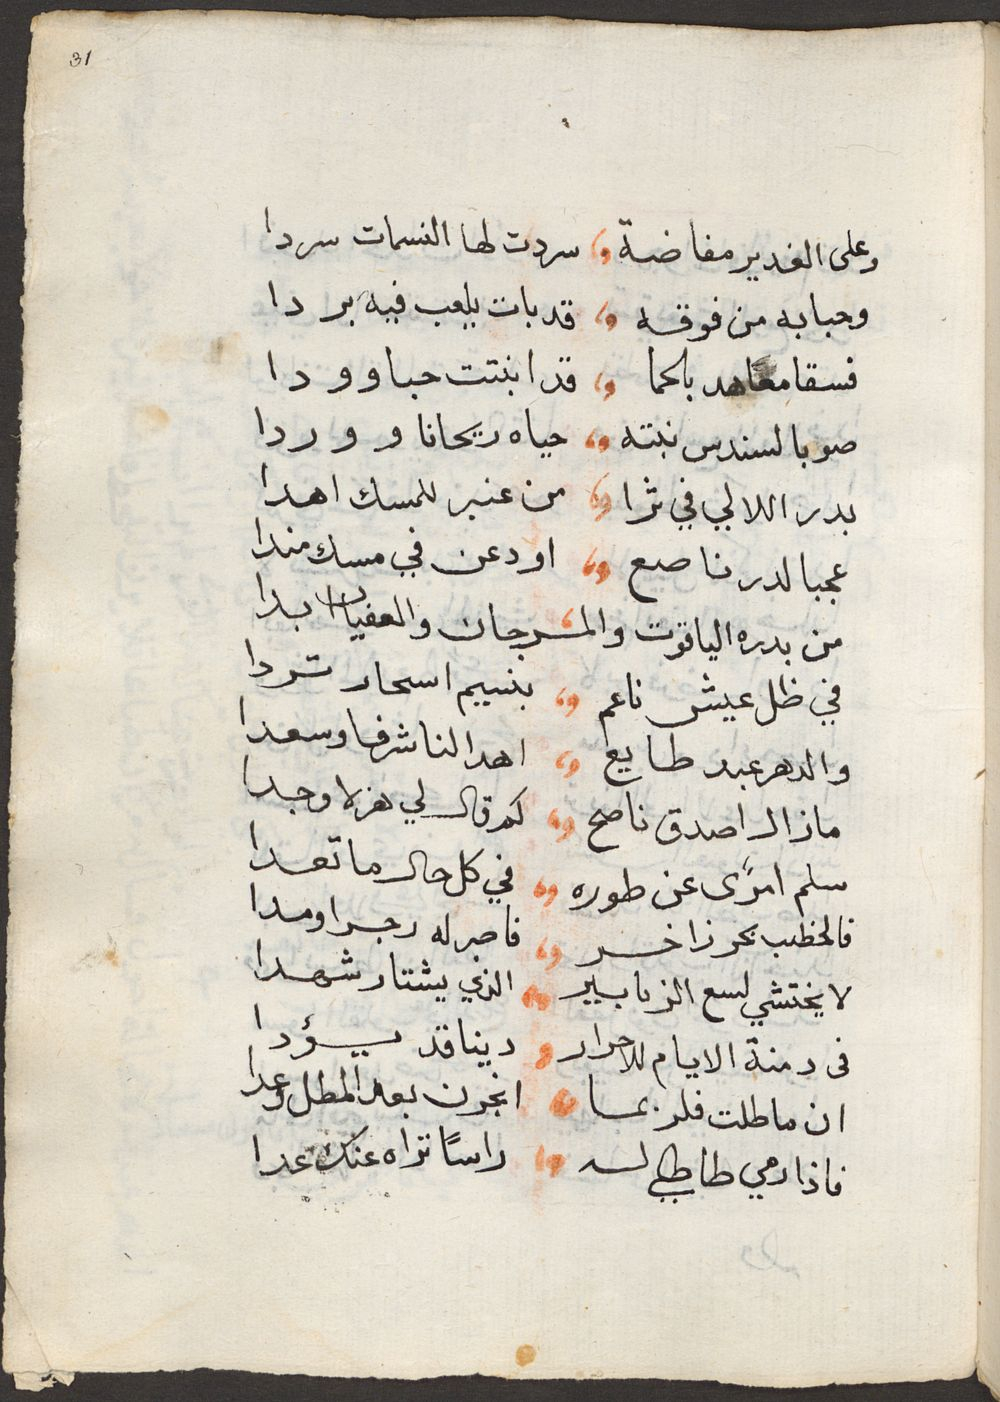 31
وعلى الغدير مفاضة ، سردت لها النسمات سردا
وحبابه من فوقه ، قد بات يلعب فيه بردا
فسقا معاهد بالحما ، قد ابنتت حبا وودا
صوبا لسندس نبته ، حياه ريحانا ووردا
بدر اللالي في ثرا ، من عنبر للمسك اهدا
عجبا لدر ناصع ، اودعن في مسك مندا
من بدره الياقوت والمرجان والعقيان ابدا
في ظل عيش ناعم ، بنسيم اسحار تردا
والدهر عبد طايع ، اهدا لنا شرفا وسعدا
ماذا الـ اصدق ناصح ، كم قال لي هزلا وجدا
سلم امرًى عن طوره ، في كل حال ما تعدا
فالخطب بحر زاخر ، فاصبر له رجرا ومدا
لا يختشي لسع الزنابير ، الذي يشتار شهدا
فى دمنة الايام للاحرار ، دينا قد يؤدا
ان ماطلت فلربما ، انجزن بعد المطل وعدا
فاذا رمي طاطي لسه ، راسًا تراه عنك عدا